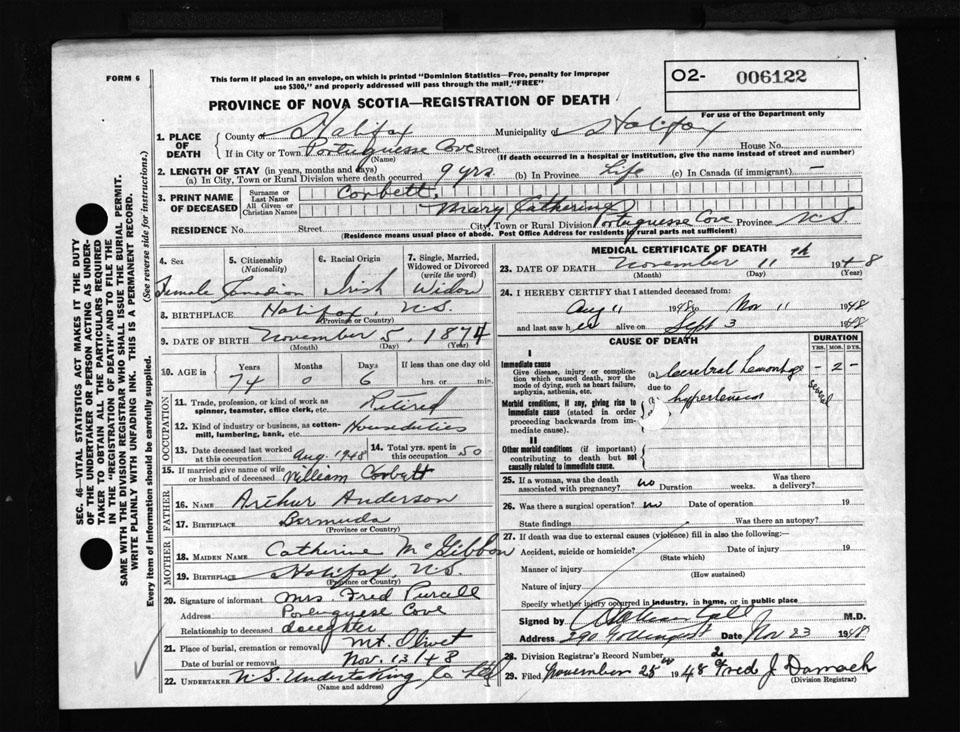 FORM 6
This form if placed in an envelope, on which is printed "Dominion Statistics—Free, penalty for improper
use $300," and properly addressed will pass through the mail, "FREE"
O2- 006122
For use of the Department only
PROVINCE OF NOVA SCOTIA—REGISTRATION OF DEATH
1. PLACE OF DEATH
County of Halifax Municipality of Halifax
If in City or Town Portuguesse Cove Street House No.
(Name) (If death occurred in a hospital or institution, give the name instead of street and number)
2. LENGTH OF STAY (in years, months and days)
(a) In City, Town or Rural Division where death occurred 9 yrs. (b) In Province Life (c) In Canada (if immigrant) —
3. PRINT NAME OF DECEASED
Surname or Last Name Corbett
All Given or Christian Names Mary Catherine
RESIDENCE No. Street City, Town or Rural Division Portuguesse Cove Province N.S.
(Residence means usual place of abode. Post Office Address for residents in rural parts not sufficient)
4. Sex Female
5. Citizenship (Nationality) Canadian
6. Racial Origin Irish
7. Single, Married, Widowed or Divorced (write the word) Widow
8. BIRTHPLACE Halifax, N.S.
(Province or Country)
9. DATE OF BIRTH November 5, 1874
(Month) (Day) (Year)
10. AGE in Years 74 Months 0 Days 6 If less than one day old hrs. or min.
OCCUPATION
11. Trade, profession, or kind of work as spinner, teamster, office clerk, etc. Retired
12. Kind of industry or business, as cotton-mill, lumbering, bank, etc. Houseduties
13. Date deceased last worked at this occupation Aug. 1948
14. Total yrs. spent in this occupation 50
15. If married give name of wife or husband of deceased William Corbett
FATHER
16. Name Arthur Anderson
17. Birthplace Bermuda
(Province or Country)
MOTHER
18. Maiden Name Catherine McGibbon
19. Birthplace Halifax, N.S.
(Province or Country)
20. Signature of informant Mrs. Fred Purcell
Address Portuguese Cove
Relationship to deceased daughter
21. Place of burial, cremation or removal Mt. Olivet
Date of burial or removal Nov. 13/48
22. UNDERTAKER N.S. Undertaking Co Ltd
(Name and address)
MEDICAL CERTIFICATE OF DEATH
23. DATE OF DEATH November 11th 1948
(Month) (Day) (Year)
24. I HEREBY CERTIFY that I attended deceased from:
Aug 11 1948 to Nov 11 1948
and last saw her alive on Sept 3 1948
CAUSE OF DEATH
DURATION
YRS. MOS. DYS.
I
Immediate cause
Give disease, injury or complication which caused death, NOT the mode of dying, such as heart failure, asphyxia, asthenia, etc.
(a) Cerebral hemorrhage - 2 -
due to
Morbid conditions, if any, giving rise to immediate cause (stated in order proceeding backwards from immediate cause).
(b) hypertension several
II
Other morbid conditions (if important) contributing to death but not causally related to immediate cause.
25. If a woman, was the death associated with pregnancy? no Duration weeks. Was there a delivery?
26. Was there a surgical operation? no Date of operation 19
State findings Was there an autopsy?
27. If death was due to external causes (violence) fill in also the following:
Accident, suicide or homicide? Date of injury 19
(State which)
Manner of injury
(How sustained)
Nature of injury
Specify whether injury occurred in industry, in home, or in public place
Signed by M.D.
Address 290 Date Nov 23 1948
28. Division Registrar's Record Number 2
29. Filed November 25 1948 Fred J Darrach
(Division Registrar)
SEC. 46—VITAL STATISTICS ACT MAKES IT THE DUTY
OF THE UNDERTAKER OR PERSON ACTING AS UNDER-
TAKER TO OBTAIN ALL THE PARTICULARS REQUIRED
IN THE "REGISTRATION OF DEATH" AND TO FILE THE
SAME WITH THE DIVISION REGISTRAR WHO SHALL ISSUE THE BURIAL PERMIT.
WRITE PLAINLY WITH UNFADING INK. THIS IS A PERMANENT RECORD.
Every item of information should be carefully supplied. (See reverse side for instructions.)